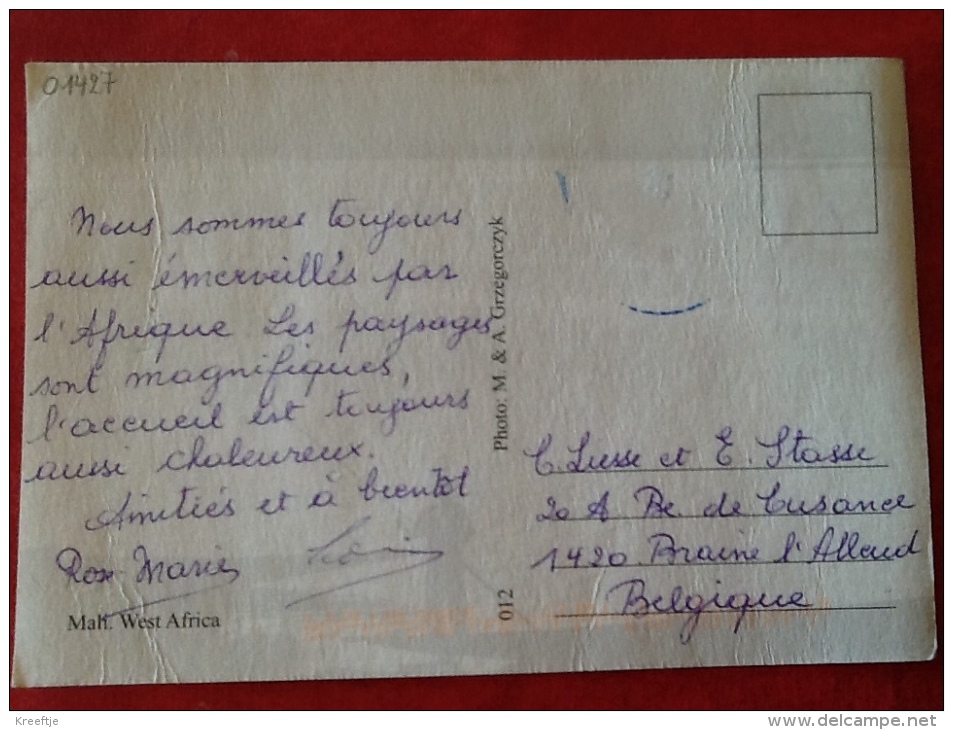 01427
Nous sommes toujours
aussi émerveillés par
l'Afrique Les paysages
sont magnifiques,
l'accueil est toujours
aussi chaleureux.
Amitiés et à bientôt
Rose-Marie
Mali. West Africa
Photo: M. & A. Grzegorczyk
012
et E. Stasse
20 A de Cusance
1420 Braine l'Alleud
Belgique
Kreeftje
www.delcampe.net